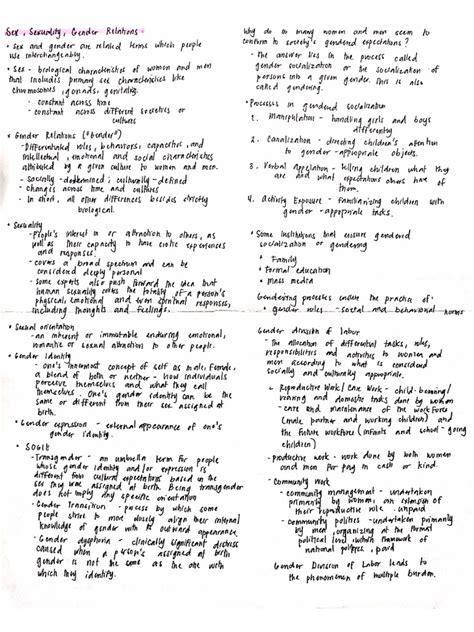 Sex, Sexuality, Gender Relations
• Sex and gender are related terms which people
use interchangeably.
• Sex - biological characteristics of women and men
that includes primary sex characteristics like
chromosomes, gonads, genitalia.
- constant across time
- constant across different societies or
cultures
• Gender Relations ("Gender")
- Differentiated roles, behaviors, capacities, and
intellectual, emotional and social characteristics
attributed by a given culture to women and men.
- Socially-determined; culturally-defined
- Changes across time and cultures
- In short, all other differences besides strictly
biological.
• Sexuality
- People's interest in or attraction to others, as
well as their capacity to have erotic experiences
and responses.
- covers a broad spectrum and can be
considered deeply personal
- Some experts also push forward the idea that
human sexuality covers the totality of a person's
physical, emotional and even spiritual responses,
including thoughts and feelings.
• Sexual orientation
- an inherent or immutable enduring emotional,
romantic or sexual attraction to other people.
• Gender Identity
- one's innermost concept of self as male, female,
a blend of both or neither - how individuals
perceive themselves and what they call
themselves. One's gender identity can be the
same or different from their sex assigned at
birth.
• Gender expression - external appearance of one's
gender identity
• SOGIE
- Transgender - an umbrella term for people
whose gender identity and/or expression is
different from cultural expectations based on the
sex they were assigned at birth. Being transgender
does not imply any specific orientation
- Gender Transition - process by which some
people strive to more closely align their internal
knowledge of gender with its outward appearance.
- Gender dysphoria - clinically significant distress
caused when a person's assigned at birth
gender is not the same as the one with
which they identify.
Why do so many women and men seem to
conform to society's gendered expectations?
- The answer lies in the process called
gender socialization or the socialization of
persons into a given gender. This is also
called gendering.
• Processes in gendered socialization
1. Manipulation - handling girls and boys
differently
2. Canalization - directing children's attention
to gender-appropriate objects.
3. Verbal Appelation - telling children what they
are and what expectations others have of
them.
4. Activity Exposure - Familiarizing children with
gender-appropriate tasks.
• Some institutions that ensure gendered
socialization or gendering
* Family
* Formal education
* Mass media
Gendering processes ensure the practice of:
• gender roles - social and behavioral norms
Gender division of labor
- The allocation of differential tasks, roles,
responsibilities and activities to women and
men according to what is considered
socially and culturally appropriate.
Reproductive Work / Care Work - child-bearing/
rearing and domestic tasks done by women
- care and maintenance of the workforce
(male partner and working children) and
the future workforce (infants and school-going
children)
- productive work - work done by both women
and men for pay in cash or kind.
- Community Work
- community management - undertaken
primarily by women; an extension of
their reproductive role. unpaid
- community politics - undertaken primarily
by men, organizing at the formal
political level, within framework of
national politics, paid
Gender Division of Labor leads to
the phenomenon of multiple burden.